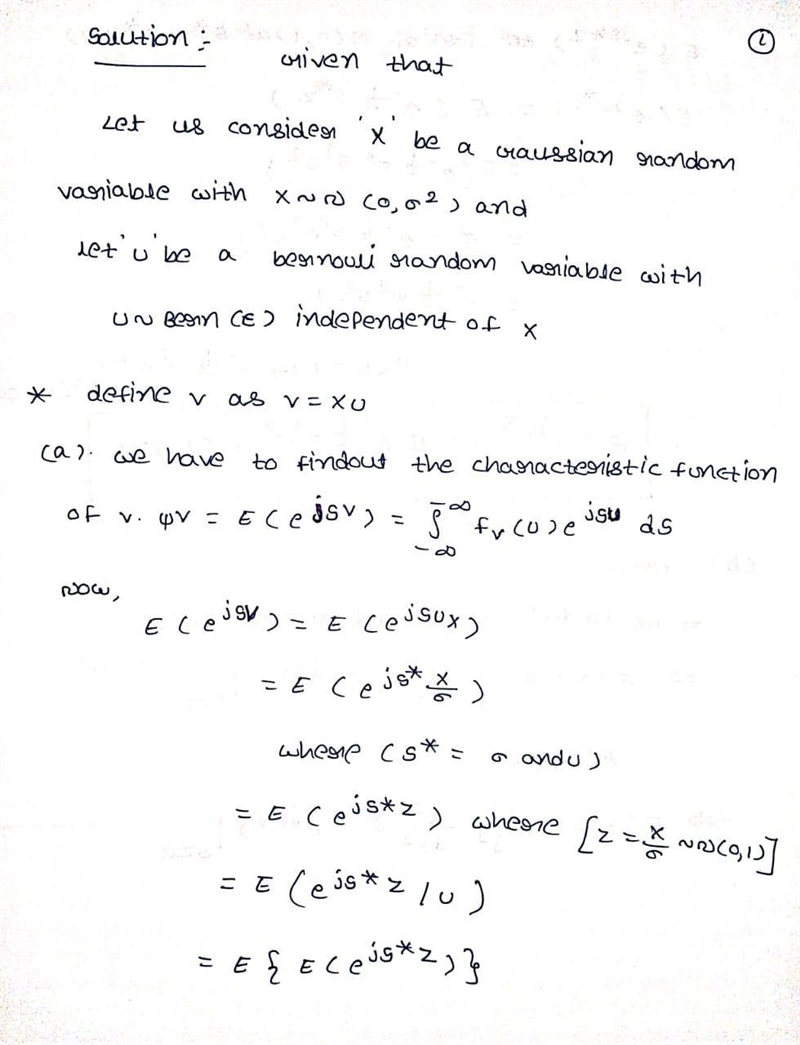 Solution :- ①
Given that
Let us consider 'X' be a Gaussian random
variable with X ~ N (0, σ²) and
let 'U' be a bernouli random variable with
U ~ Bern (ε) independent of X
* define V as V = XU
(a). we have to findout the characteristic function
of V. ψV = E ( e^jSV ) = ∫_-∞^-∞ f_V (U) e^jSU ds
Now,
E ( e^jSV ) = E ( e^jSUX )
= E ( e^jS* X/σ )
where ( S* = σ and U )
= E ( e^jS*Z ) where [ Z = X/σ ~ N(0,1) ]
= E ( e^jS*Z / U )
= E { E ( e^jS*Z ) }